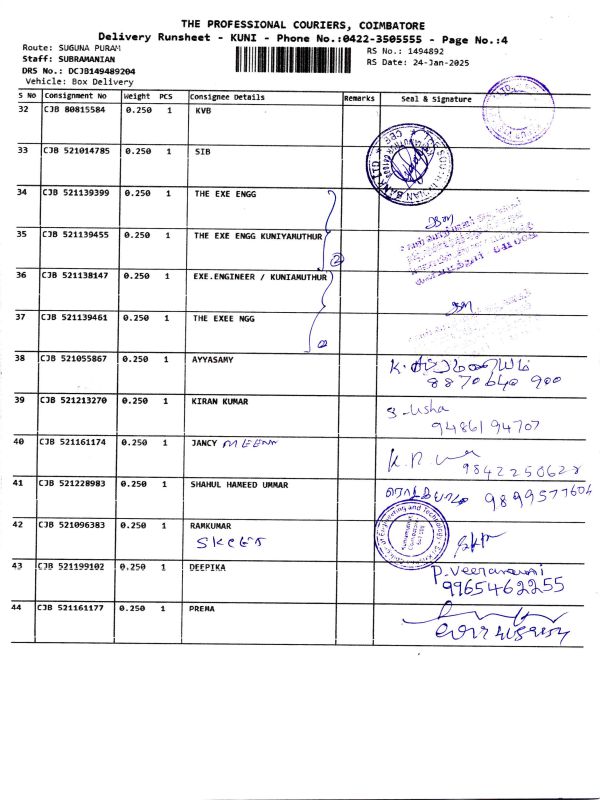 THE PROFESSIONAL COURIERS, COIMBATORE
Delivery Runsheet - KUNI - Phone No.:0422-3505555 - Page No.:4
Route: SUGUNA PURAM
RS No.: 1494892
Staff: SUBRAMANIAN
RS Date: 24-Jan-2025
DRS No.: DCJB149489204
Vehicle: Box Delivery
S No Consignment No Weight PCS Consignee Details Remarks Seal & Signature
32 CJB 80815584 0.250 1 KVB
33 CJB 521014785 0.250 1 SIB
34 CJB 521139399 0.250 1 THE EXE ENGG
35 CJB 521139455 0.250 1 THE EXE ENGG KUNIYAMUTHUR
2
36 CJB 521138147 0.250 1 EXE.ENGINEER / KUNIAMUTHUR
37 CJB 521139461 0.250 1 THE EXEE NGG
38 CJB 521055867 0.250 1 AYYASAMY
8870640900
39 CJB 521213270 0.250 1 KIRAN KUMAR S-Usha
9486194707
40 CJB 521161174 0.250 1 JANCY MEENA
9842250628
41 CJB 521228983 0.250 1 SHAHUL HAMEED UMMAR 9899577604
42 CJB 521096383 0.250 1 RAMKUMAR
SKCET
43 CJB 521199102 0.250 1 DEEPIKA P. Veeramani
9965462255
44 CJB 521161177 0.250 1 PREMA